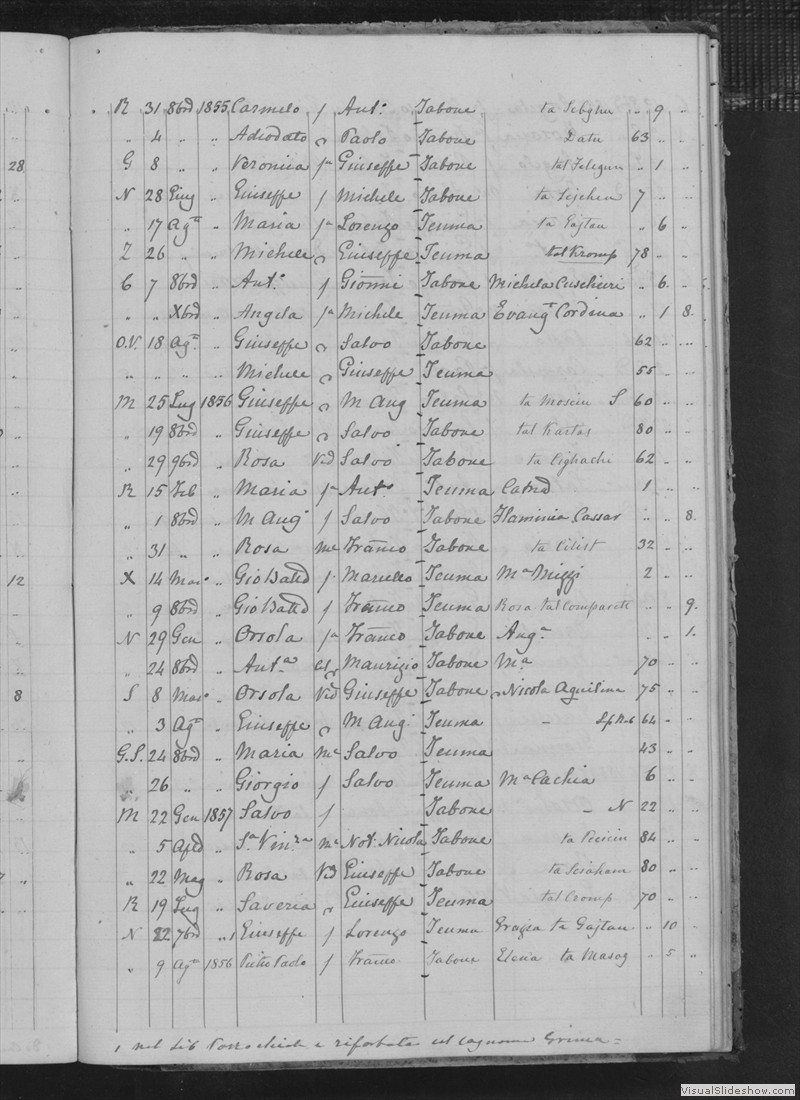 28
12
8
R 31 8bre 1855 Carmelo f Ant° Tabone ta Sebghu .. 9 ..
.. 4 .. .. Adeodato Paolo Tabone Datu 63 .. ..
G 8 .. .. Veronica fa Giuseffe Tabone .. 1 ..
N 28 Giug .. Giuseffe f Michele Tabone 7 .. ..
.. 17 Agto .. Maria fa Lorenzo Teuma ta Gajtan .. 6 ..
Z 26 .. .. Michele Giuseffe Teuma tal Kromp 78 .. ..
C 7 8bre .. Ant° f Gionni Tabone Michela Cuschieri .. 6 ..
.. .. Xbre .. Angela fa Michele Teuma Evangta Cordina .. 1 8
O.V. 18 Agto .. Giuseffe Salvo Tabone 62 .. ..
.. .. .. .. Michele Giuseffe Teuma 55 .. ..
M 25 Lug 1856 Giuseffe M Ang Teuma S 60 .. ..
.. 19 8bre .. Giuseffe Salvo Tabone 80 .. ..
.. 29 9bre .. Rosa Vid Salvo Tabone 62 .. ..
R 15 Feb .. Maria fa Ant° Teuma Catna 1 .. ..
.. 1 8bre .. M Ang f Salvo Tabone Flaminia Cassar .. .. 8
.. 31 .. .. Rosa me Franco Tabone ta Celest 32 .. ..
X 14 Mar° .. Gio Batta f Marcello Teuma Ma Mizzi 2 .. ..
.. 9 8bre .. Gio Batta f Franco Teuma Rosa .. .. 9
N 29 Gen .. Orsola fa Franco Tabone Anga .. .. 1
.. 24 8bre .. Anta Maurizio Tabone Ma 70 .. ..
S 8 Mar° .. Orsola Vid Giuseffe Tabone Nicola Aquilina 75 .. ..
.. 3 Agto .. Giuseffe M Ang Teuma 64 .. ..
G.S. 24 8bre .. Maria me Salvo Teuma 43 .. ..
.. 26 .. .. Giorgio f Salvo Teuma Ma Cachia 6 .. ..
M 22 Gen 1857 Salvo f Tabone N 22 .. ..
.. 5 Aple .. Sa Vinza me Not. Nicola Tabone 84 .. ..
.. 22 Mag .. Rosa Vid Giuseffe Tabone 80 .. ..
R 19 Lug .. Saveria Giuseffe Teuma tal Cromp 70 .. ..
N 22 7bre .. 1 Giuseffe f Lorenzo Teuma Grazia ta Gajtan .. 10 ..
.. 9 Agto 1856 Pietro Paolo f Franco Tabone Elena ta Masoz .. 5 ..
1 nel Lib Parrochiale è riportata col cognome Grima =
VisualSlideshow.com